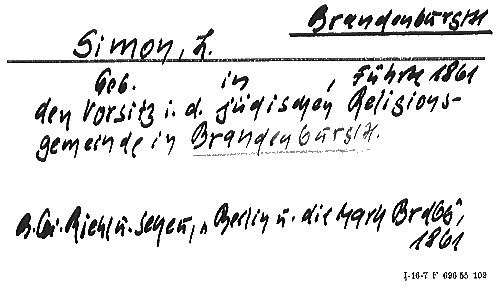 Brandenburg/H
Simon, L.
Geb. in , Führte 1861
den Vorsitz i. d. jüdischen Religions-
gemeinde in Brandenburg/H.
Riehl u. Scheu, „Berlin u. die Mark Brdbg",
1861
I-16-7 F 696 55 102